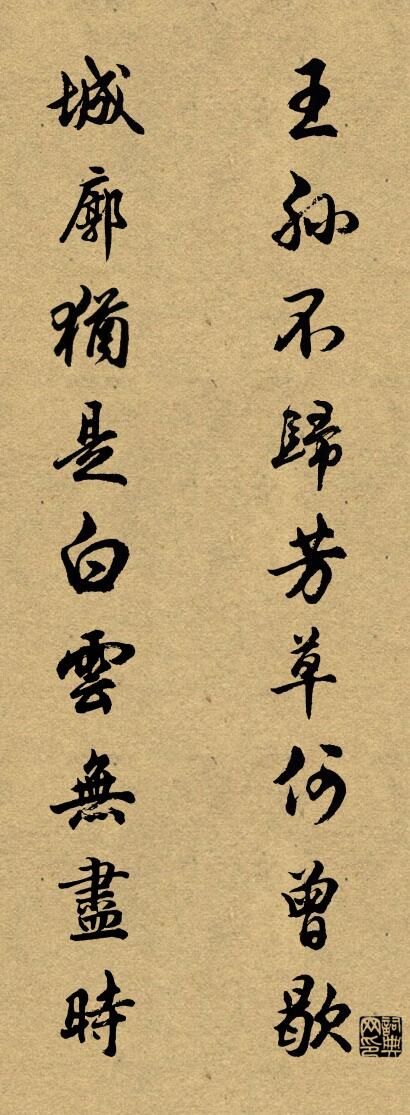 王孫不歸芳草何曾歇
城廓猶是白雲無盡時
詞典網印